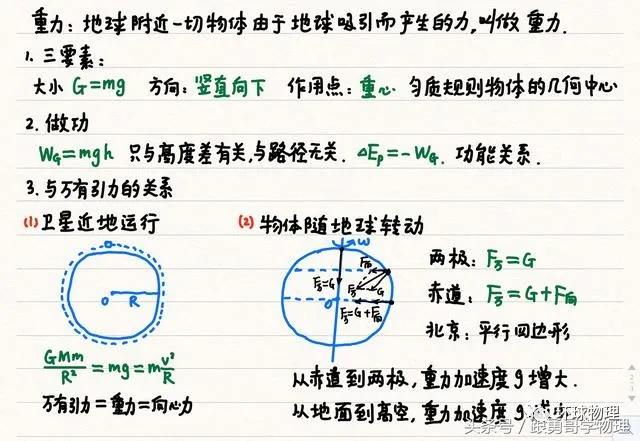 重力：地球附近一切物体由于地球吸引而产生的力，叫做重力．
1. 三要素：
大小 G=mg 方向：竖直向下 作用点：重心 匀质规则物体的几何中心
2. 做功
W_G=mgh 只与高度差有关，与路径无关．ΔEp=-W_G．功能关系．
3. 与万有引力的关系
(1) 卫星近地运行
O R
GMm/R²=mg=mv²/R
万有引力=重力=向心力
(2) 物体随地球转动
ω
F向
F万=G
F万 G
O
F万=G+F向
两极：F万=G
赤道：F万=G+F向
北京：平行四边形
从赤道到两极，重力加速度g增大．
从地面到高空，重力加速度g
环球物理
头条号/跟勇哥学物理